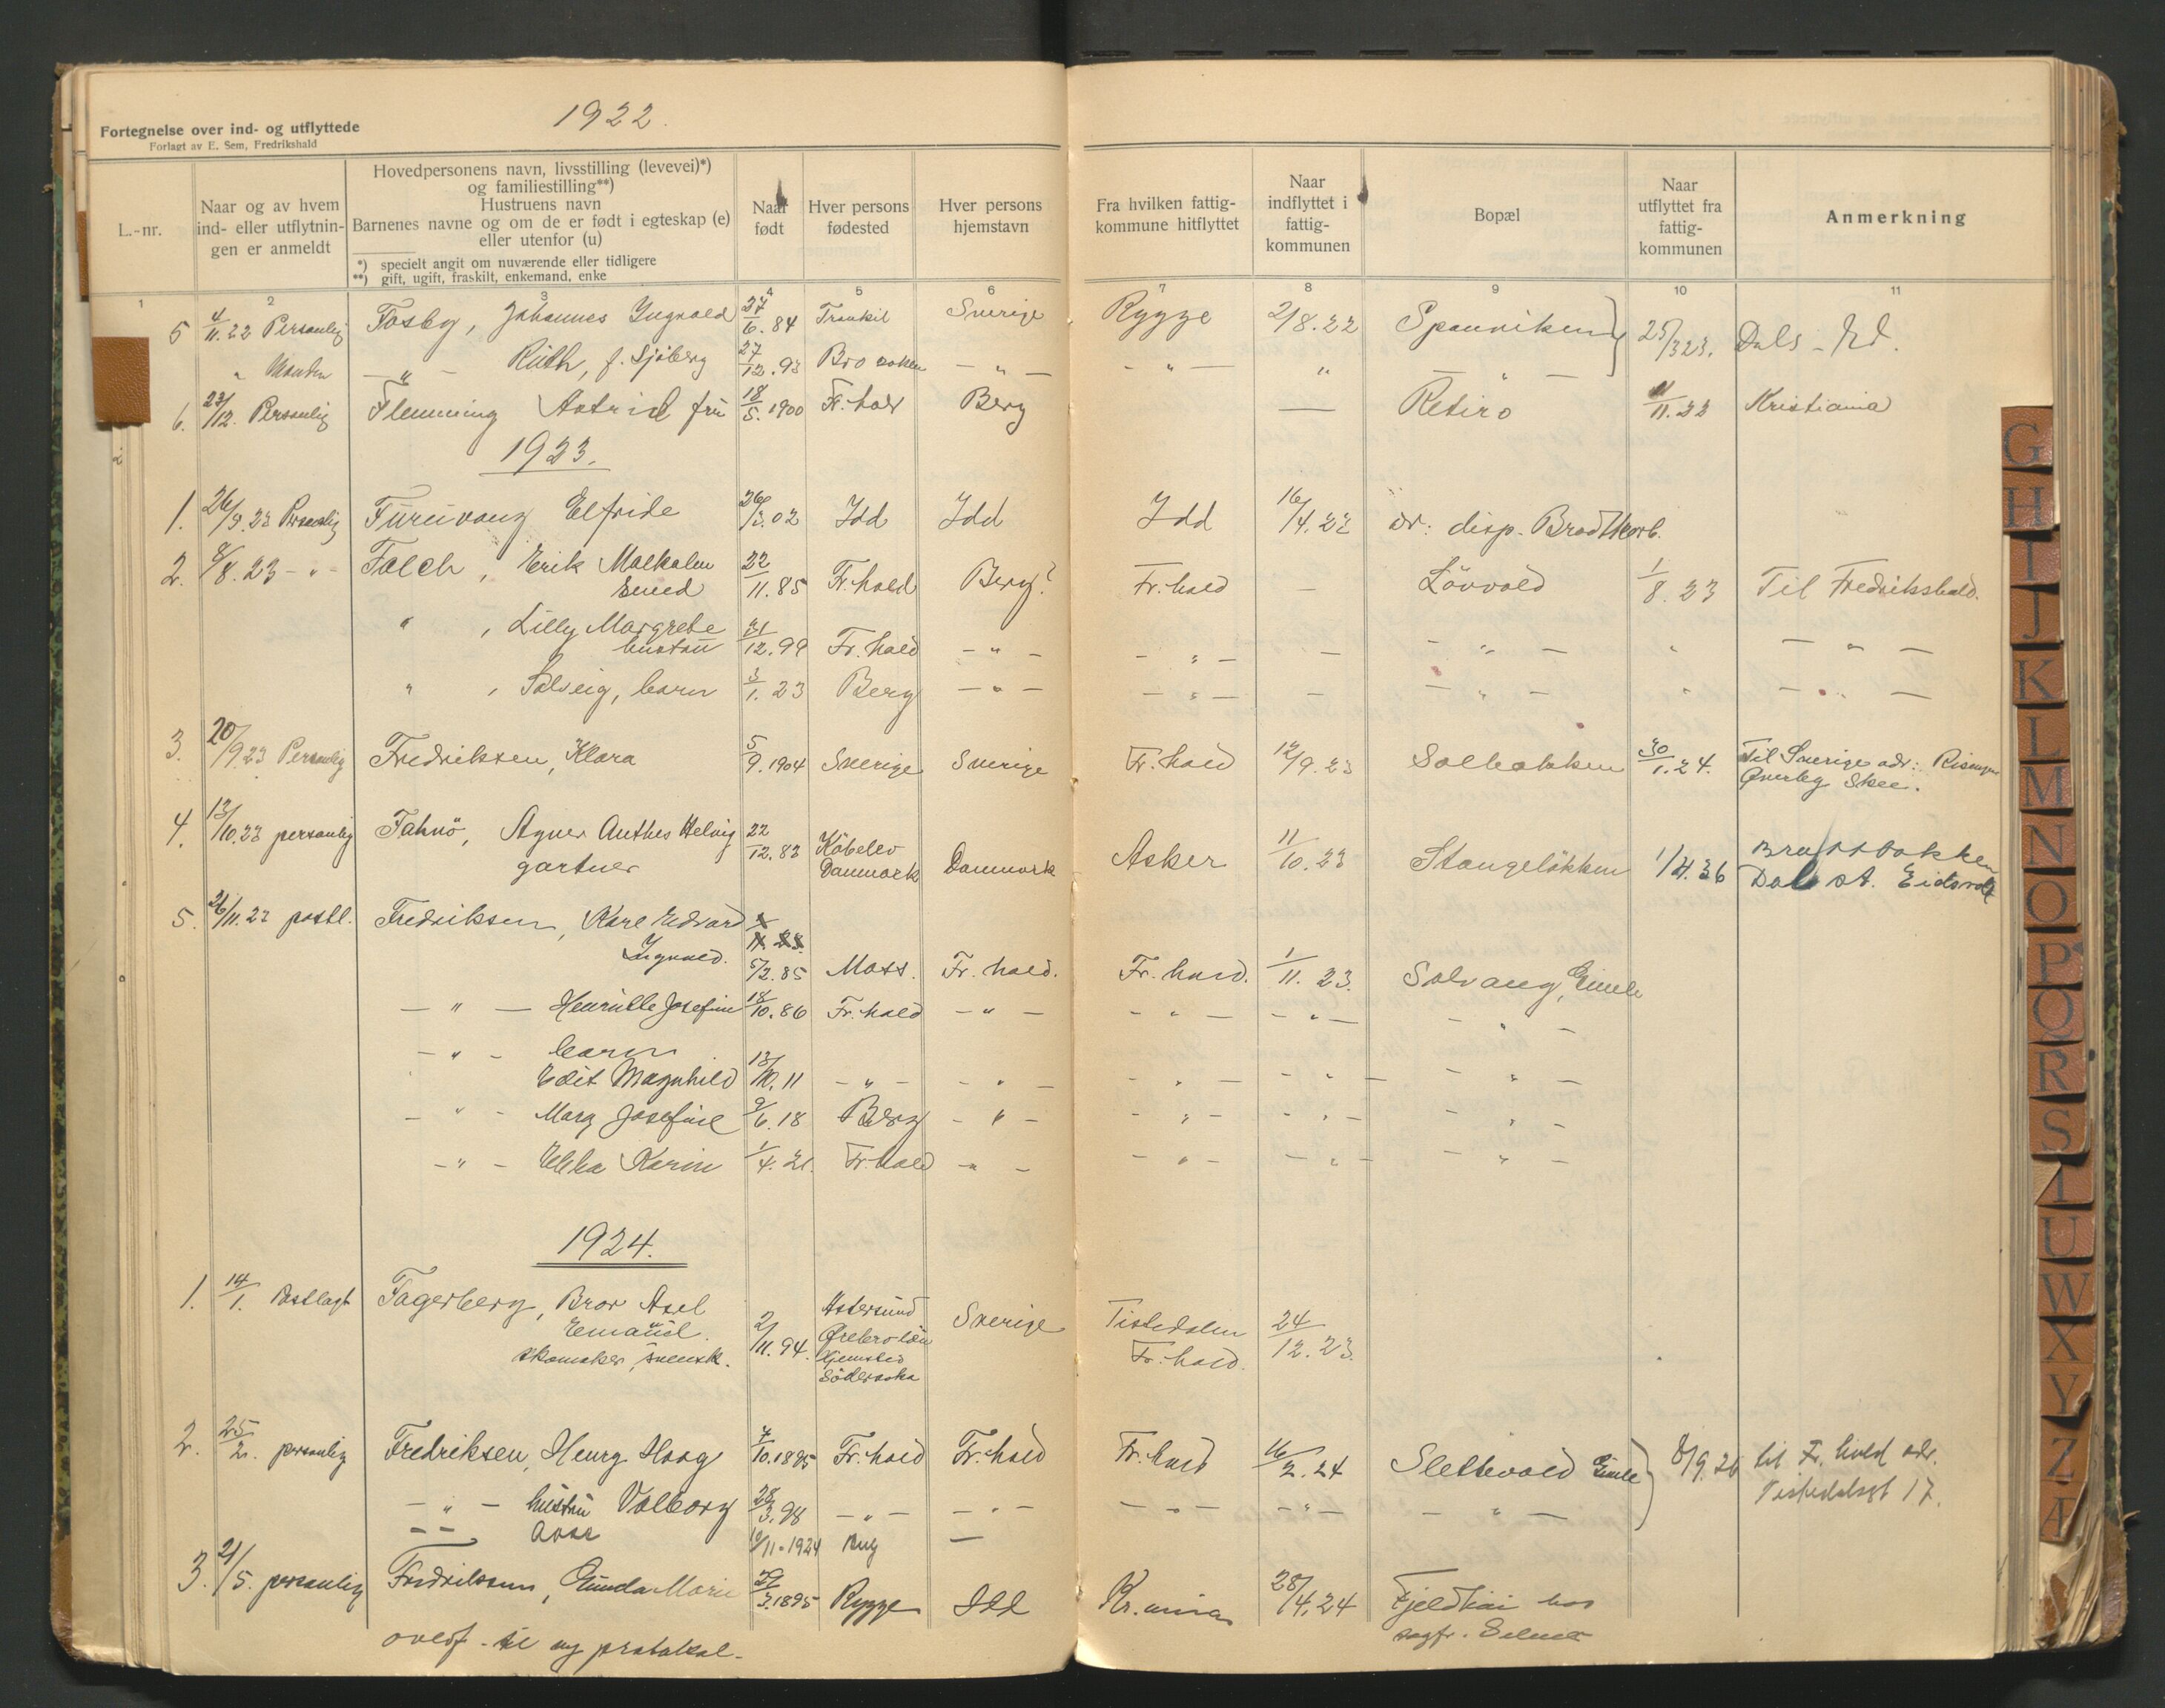 1922.
Fortegnelse over ind- og utflyttede
Forlagt av E. Sem, Fredrikshald
L.-nr.
Naar og av hvem ind- eller utflytnin-gen er anmeldt
Hovedpersonens navn, livsstilling (levevei)*) og familiestilling**)
Hustruens navn
Barnenes navne og om de er født i egteskap (e) eller utenfor (u)
*) specielt angit om nuværende eller tidligere
**) gift, ugift, fraskilt, enkemand, enke
Naar født
Hver persons fødested
Hver persons hjemstavn
Fra hvilken fattig-kommune hitflyttet
Naar indflyttet i fattig-kommunen
Bopæl
Naar utflyttet fra fattig-kommunen
Anmerkning
1 2 3 4 5 6 7 8 9 10 11
5 4/11.22 Personlig Fosby, Johannes Ingvald 27/6.84 Trankil Sverige Rygge 2/8.22 Sponviken 25/3 23. Dals-Ed.
" Manden — " — Ruth, f. Sjöberg 27/12.93 Bro soken — " — - " — " — " —
6. 23/12. Personlig Flemming Astrid fru 18/5.1900 Fr.hald Berg — Retiro 11/11.22 Kristiania
1923.
1. 26/9.23 Personlig Furuvang Elfride 26/3.02 Idd Idd Idd 16/4.23 adr: disp. Brodtkorb.
2. 8/8.23 - " - Falch, Erik Malkolm 22/11.85 Fr.hald Berg? Fr.hald — Lövvold 1/8.23 Til Fredrikshald.
" , Lilly Margrete 31/12.99 Fr.hald - " - - " - — - " — " — " —
hustru
" , Solveig, barn 3/1.23 Berg — " — — " — — — " — " — " —
3. 20/9.23 Personlig Fredriksen, Klara 5/9.1904 Sverige Sverige Fr.hald 12/9.23 Solbakken 30/1.24. Til Sverige adr:
Överby Skee.
4. 13/10.23 personlig Fahnö, Agner Anthes Helvig 22/12.83 Köbelev Danmark Danmark Asker 11/10.23 Stangelökken 1/4.36
gartner
Dal st. Eidsvold
5. 26/11.23 postl. Fredriksen, Karl Edvard
Ingvald. 5/2.85 Moss. Fr.hald. Fr.hald. 1/11.23. Solvang, Gimle
— " — Henriette Josefine 18/10.86 Fr.hald — " — - " — - " — - " -
— " - barn
Edit Magnhild 13/10.11 — " - — " — - " — - " — - " —
— " - Marg Josefine 9/6.18 Berg - " - - " - - " - - " -
— " - Ebba Karin 1/4.21. Fr.hald - " - - " - - " - - " -
1924.
1. 14/1. Postlagt Fagerberg, Bror Axel
Emanuel. 2/11.94. Örebro län Sverige Tistedalen 24/12.23.
skomaker, svensk. Fr.hald.
2. 25/2. personlig Fredriksen, Henry Haag 4/10.1895 Fr.hald Fr.hald Fr.hald 16/2.24 Slettevold Gimle 8/9.26 til Fr.hald adr.
— " — hustru Valborg 28/3.98 — " - — " - — " — - " — — " — Tistedalsgt 17.
— " — Aase 10/11-1924 —
3. 21/5. personlig Fredriksen, Gunda Marie 29/3.1895 Rygge Idd Kr.ania 28/4.24 Fjeldhei hos
sagfr.
overf. til ny protokol.
G
H
I
J
K
L
M
N
O
P
Q
R
S
T
U
W
X
Y
Z
Æ